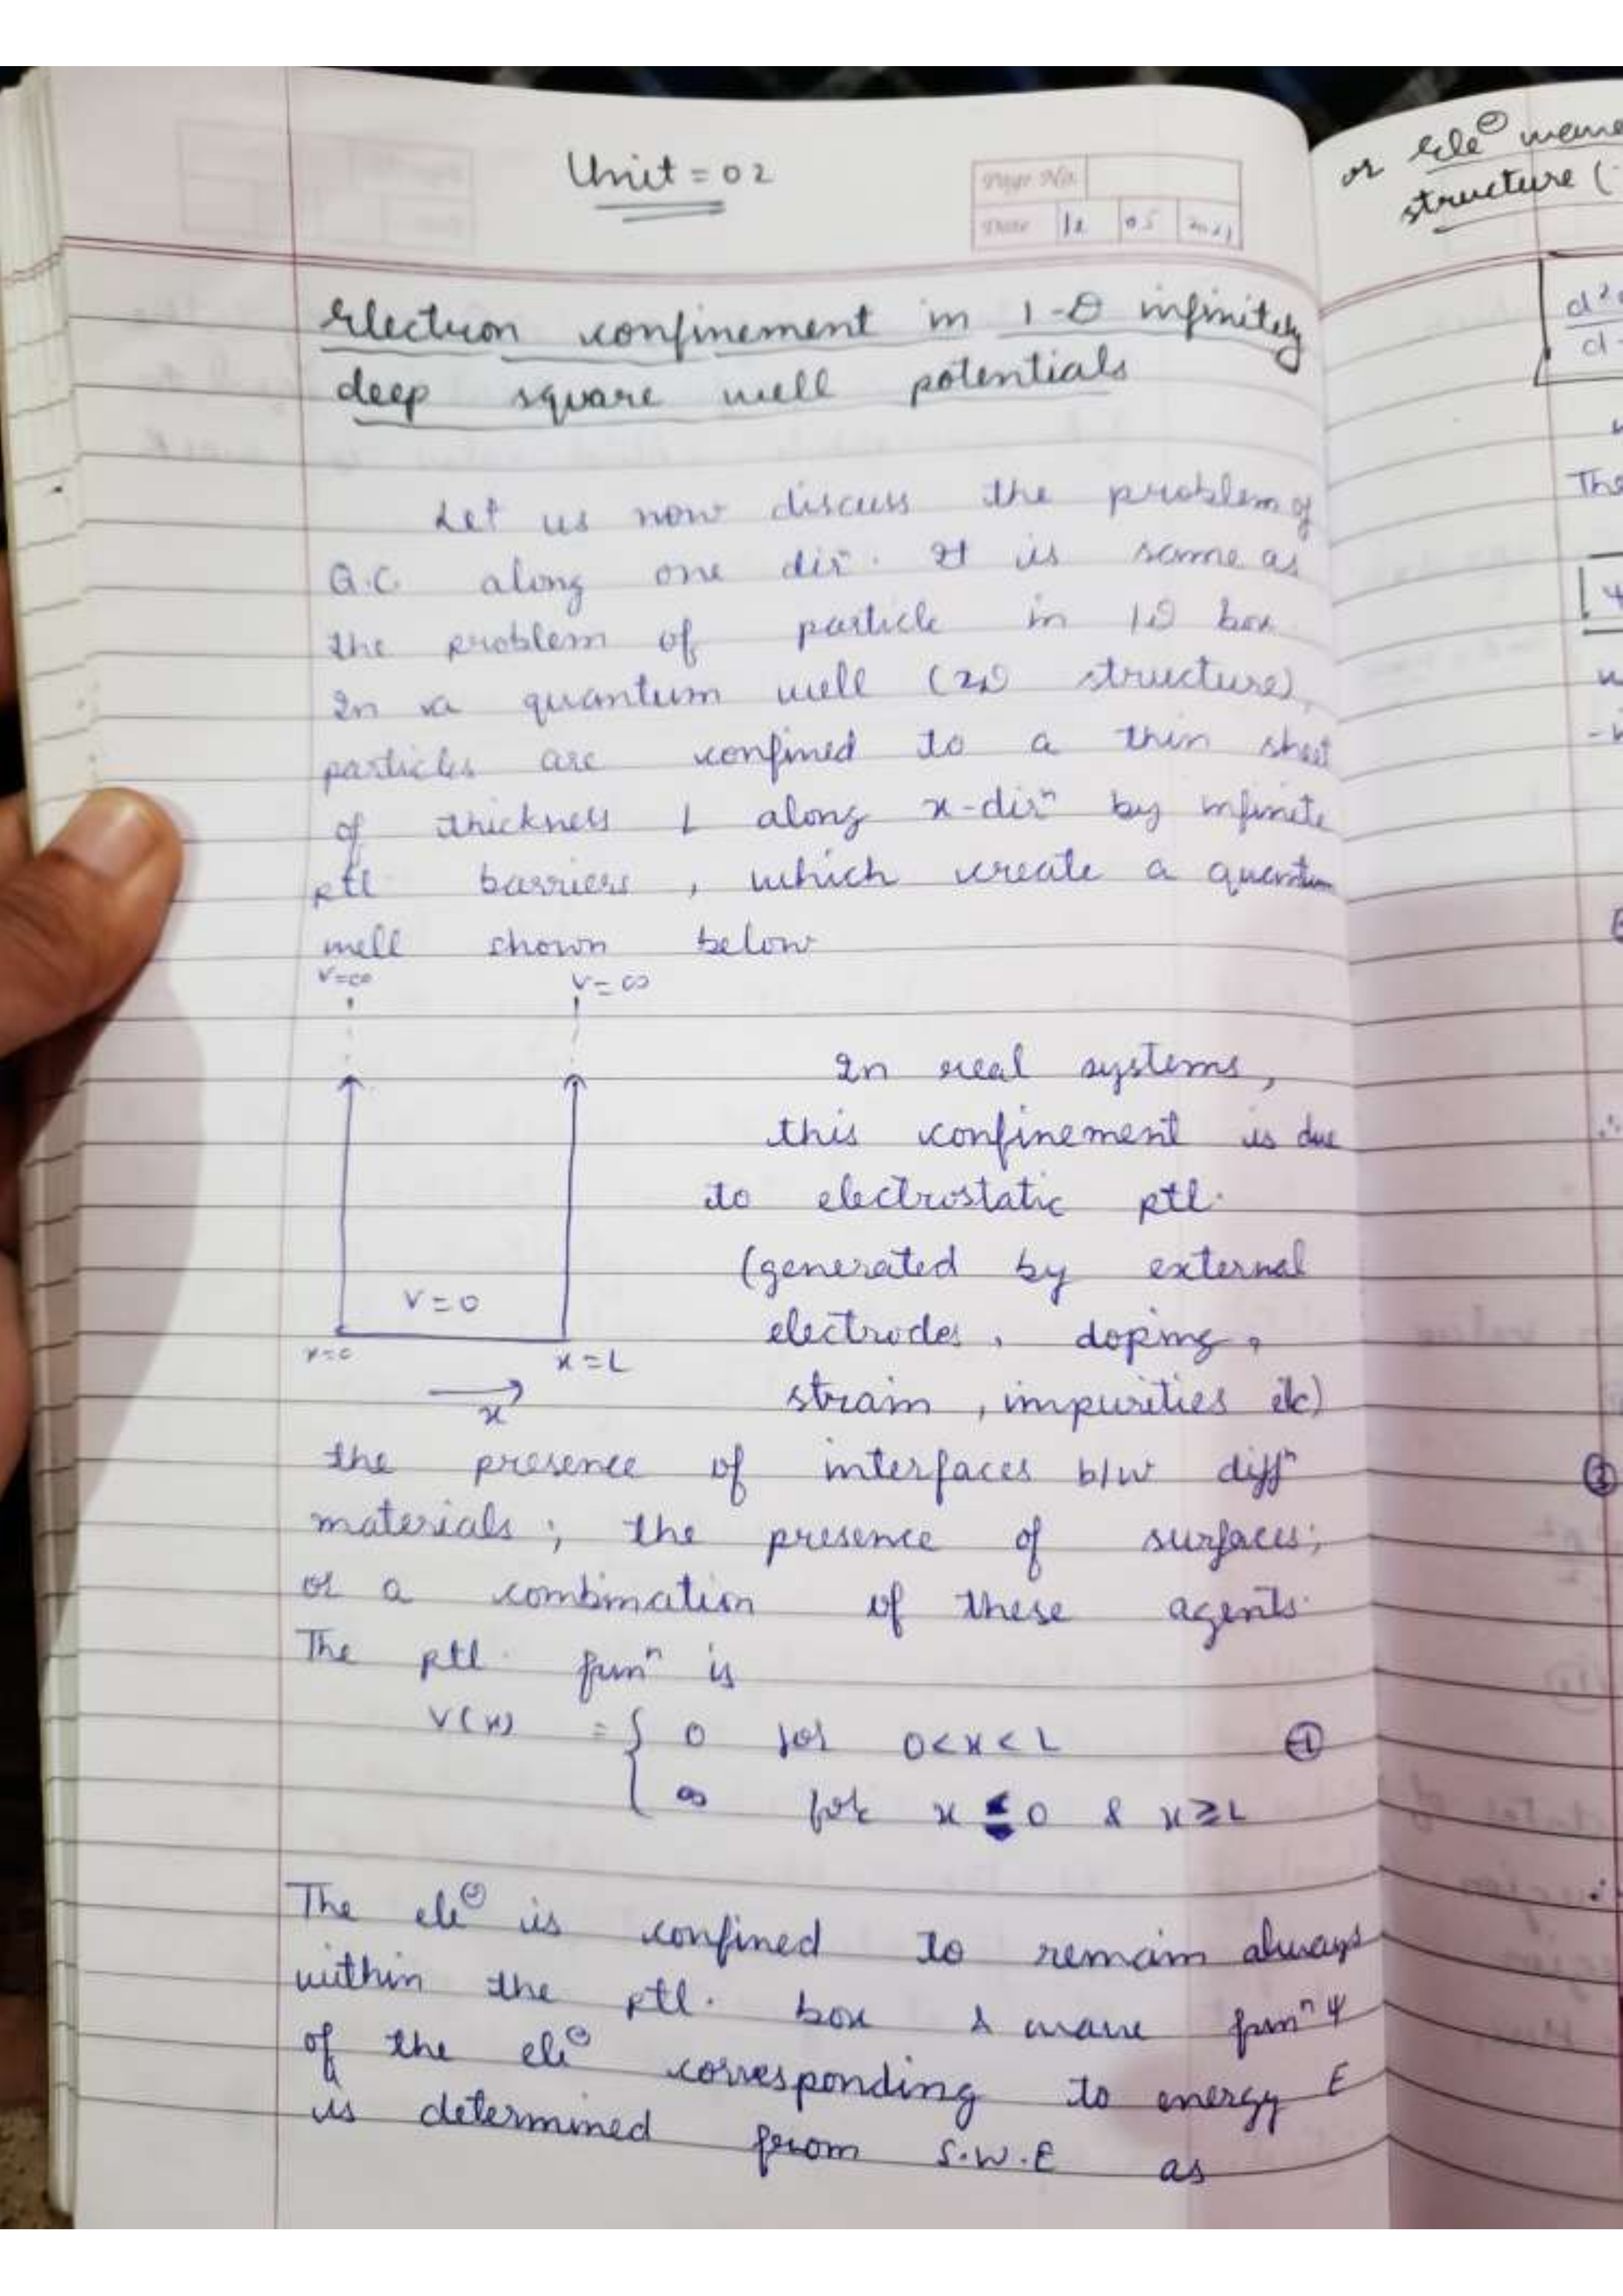 Unit = 02
Page No.
Date 12 05 2021
Electron confinement in 1-D infinitely
deep square well potentials
Let us now discuss the problem of
Q.C. along one dirⁿ. It is same as
the problem of particle in 1D box
In a quantum well (2D structure),
particles are confined to a thin sheet
of thickness L along x-dirⁿ by infinite
ptl barriers, which create a quantum
well shown below
V=∞ V=∞
In real systems,
this confinement is due
to electrostatic ptl.
(generated by external
V=0
electrodes, doping,
x=0 x=L
strain, impurities etc)
x
the presence of interfaces b/w diffⁿ
materials; the presence of surfaces;
or a combination of these agents.
The ptl. funⁿ is
V(x) = { 0 for 0<x<L ①
∞ for x ≤ 0 & x≥L
The ele⊖ is confined to remain always
within the ptl. box & wave funⁿ ψ
of the ele⊖ corresponding to energy E
is determined from S.W.E as
or ele⊖
structure (
d²
d
The
ψ
②